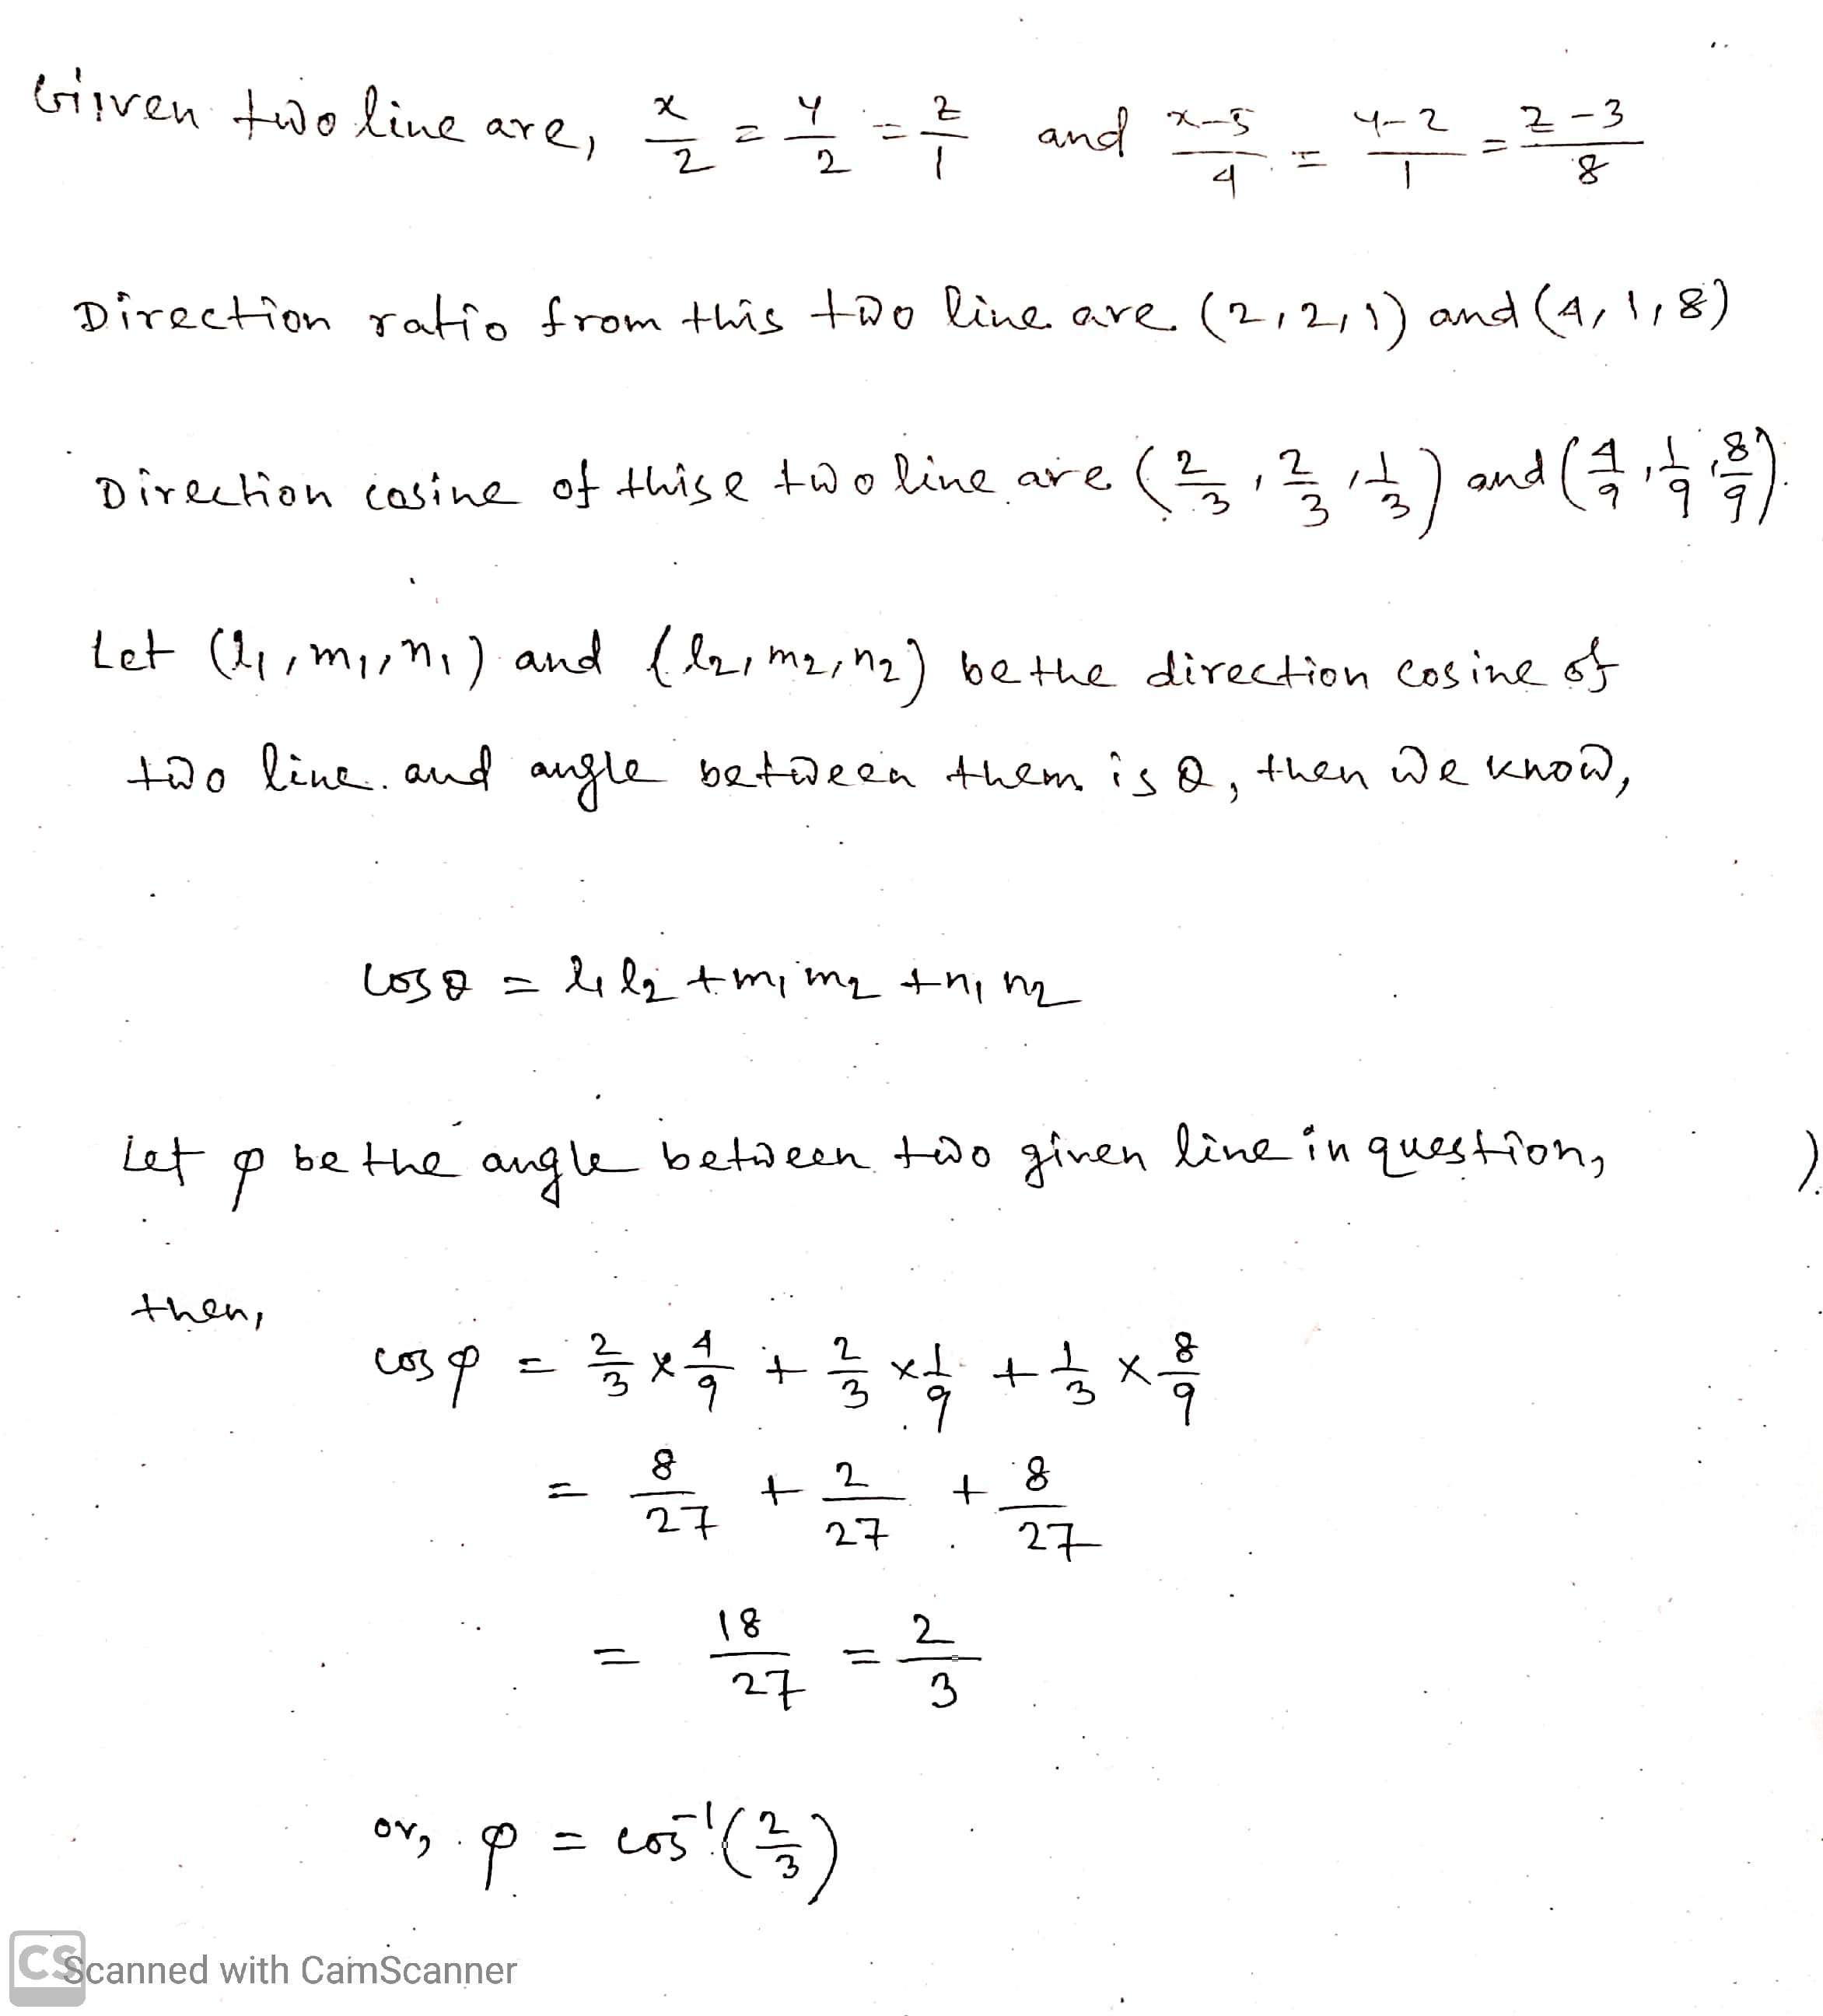 Given two line are, x/2 = y/2 = z/1 and x-5/4 = y-2/1 = z-3/8
Direction ratio from this two line are (2,2,1) and (4,1,8)
Direction cosine of thise two line are (2/3, 2/3, 1/3) and (4/9, 1/9, 8/9).
Let (l1, m1, n1) and (l2, m2, n2) be the direction cosine of
two line and angle between them is θ, then we know,
cosθ = l1 l2 + m1 m2 + n1 n2
Let φ be the angle between two given line in question,
then,
cos φ = 2/3 × 4/9 + 2/3 × 1/9 + 1/3 × 8/9
= 8/27 + 2/27 + 8/27
= 18/27 = 2/3
or, φ = cos⁻¹(2/3)
CS Scanned with CamScanner